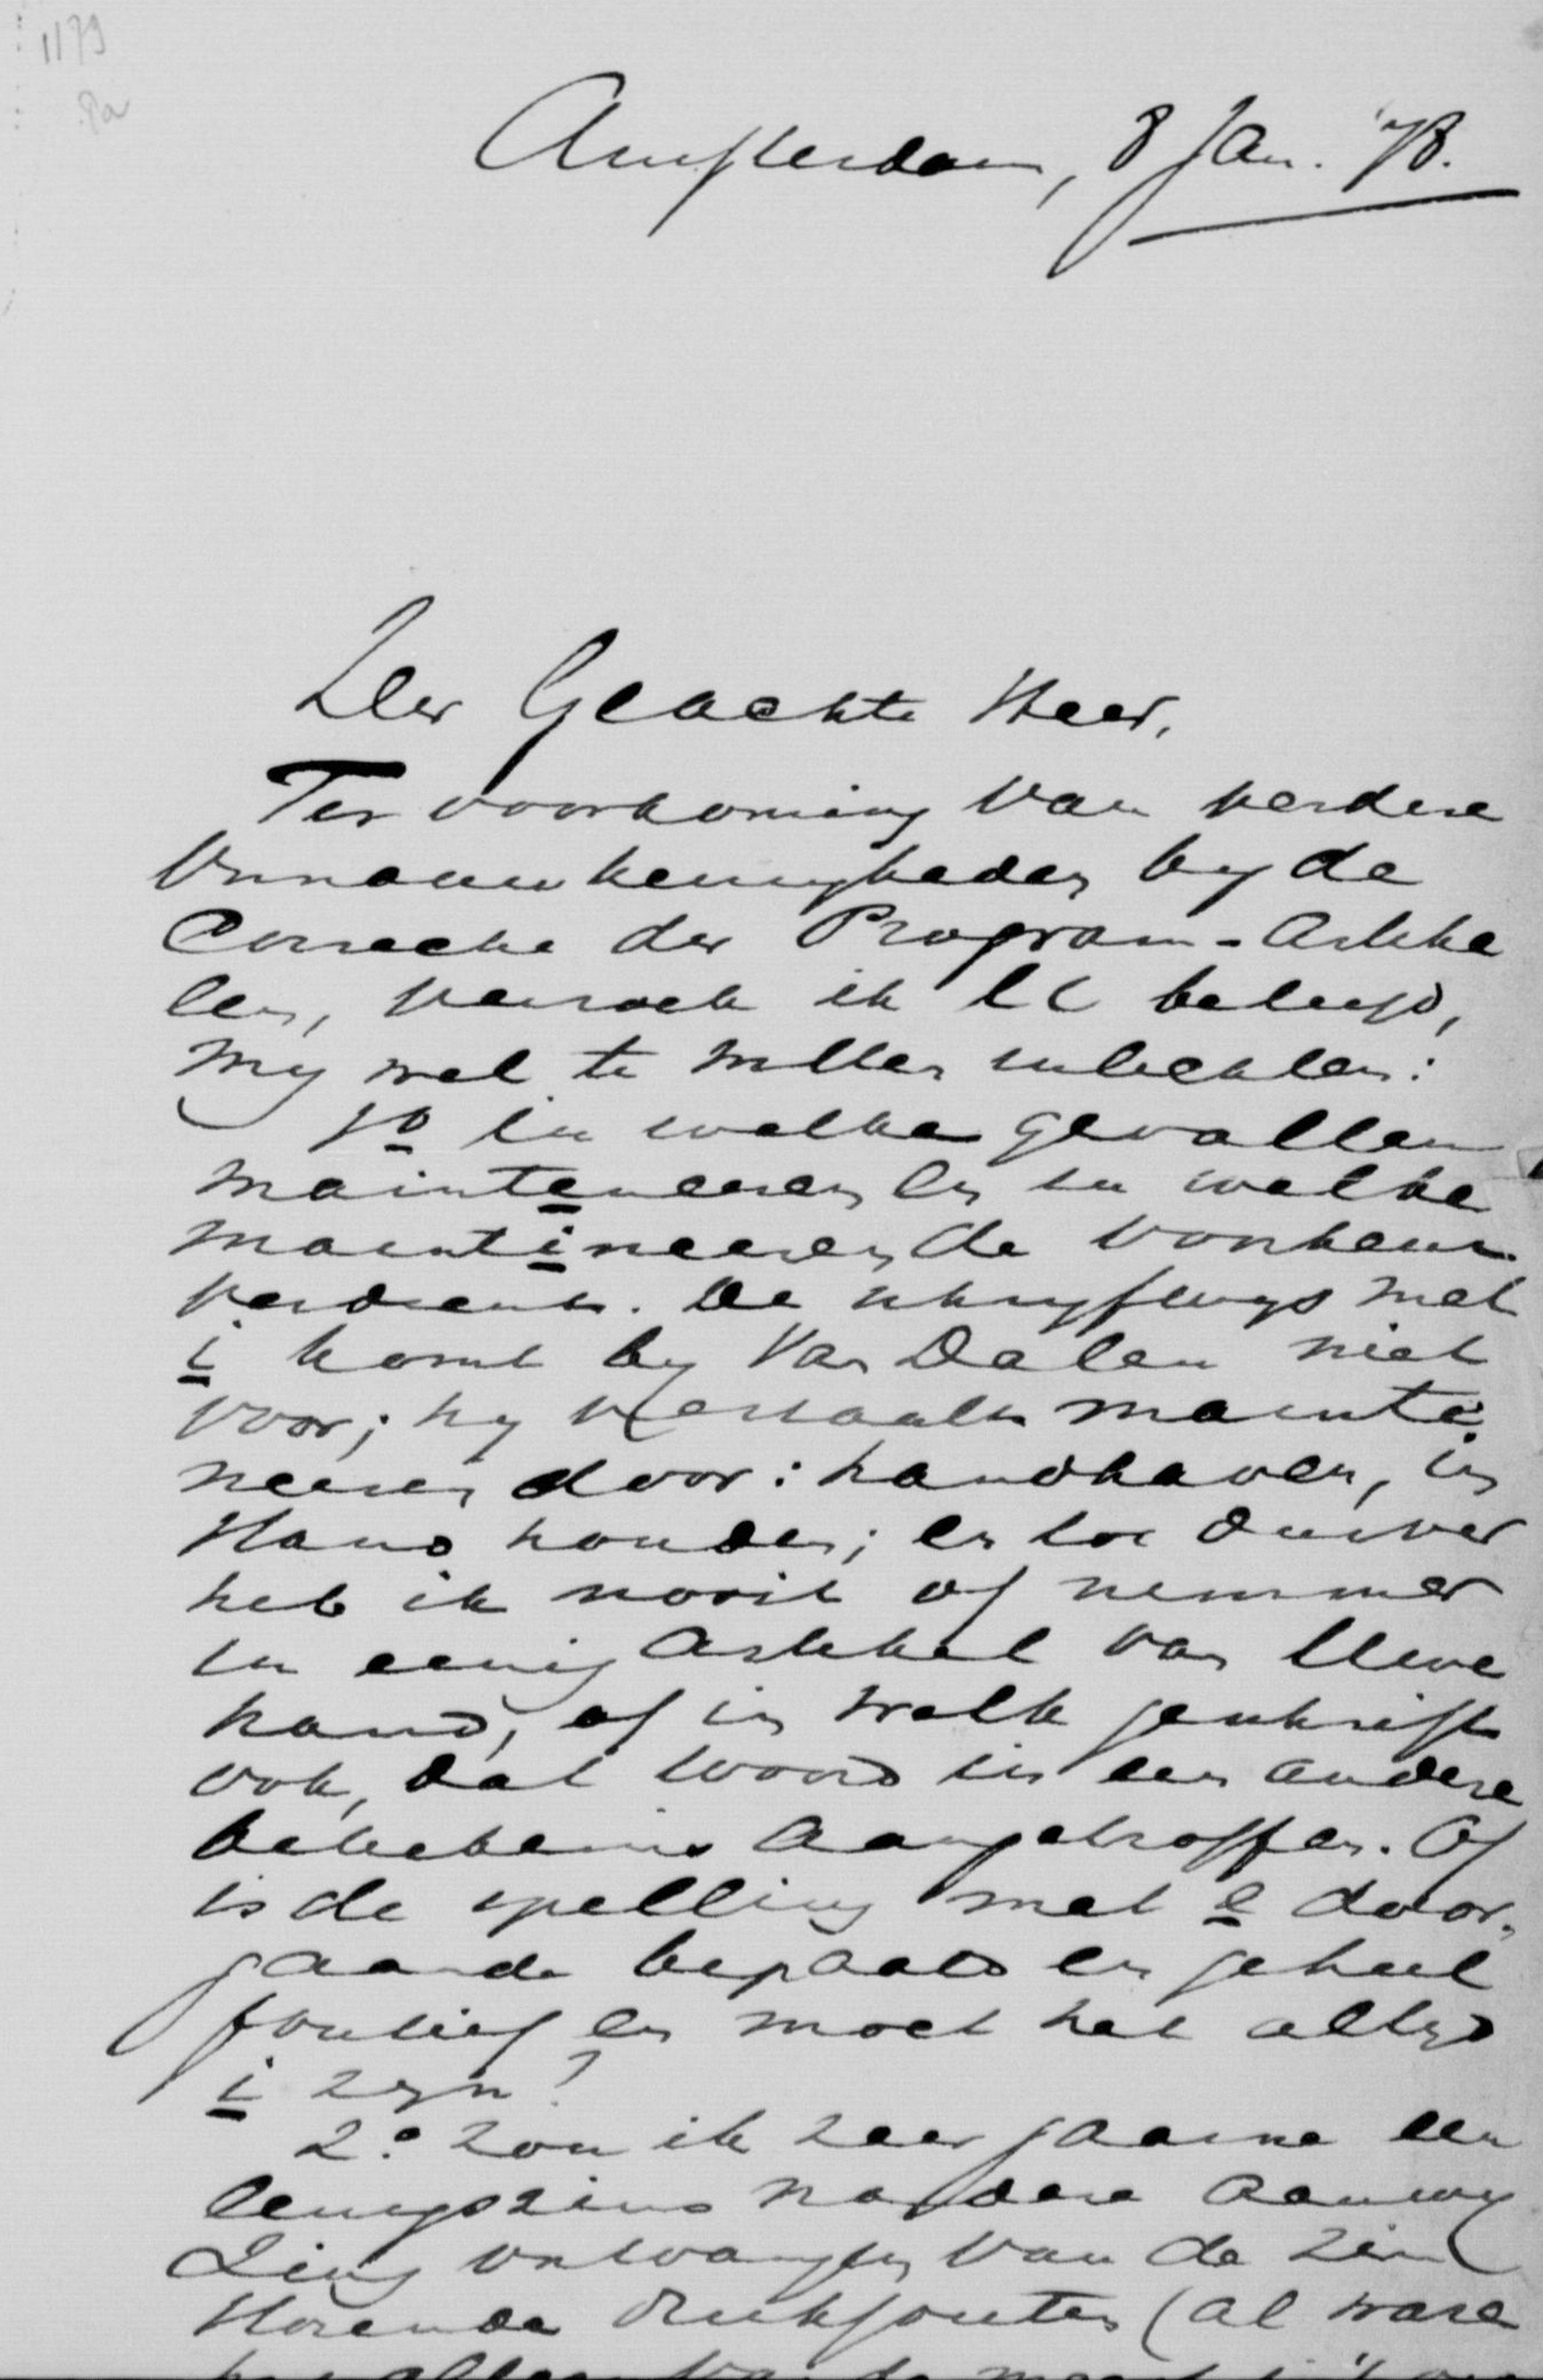 1179
Amsterdam, 8 Jan. '78.
Zeer Geachte Heer,
Ter voorkoming van verdere
onnauwkeurigheden by de
Correctie der Program-Artike
len, verzoek ik U beleefd,
my wel te willen inlichten:
1o in welke gevallen
mainteneeren en in welke
maintineeren de voorkeur
verdient. De schryfwys met
i komt by Van Dalen niet
voor; hy vertaalt mainte
neeren door: handhaven, in
stand houden; en tot dusver
heb ik nooit of nimmer
in eenig Artikel van Uwe
hand, of in welk geschrift
ook, dat woord in een andere
beteekenis aangetroffen. Of
is de spelling met e door-
gaande bepaald en geheel
foutief en moet het altyd
i zyn?
2o zou ik zeer gaarne een
eenigszins nadere aanwy
zing ontvangen van de zin
storende drukfouten (al ware